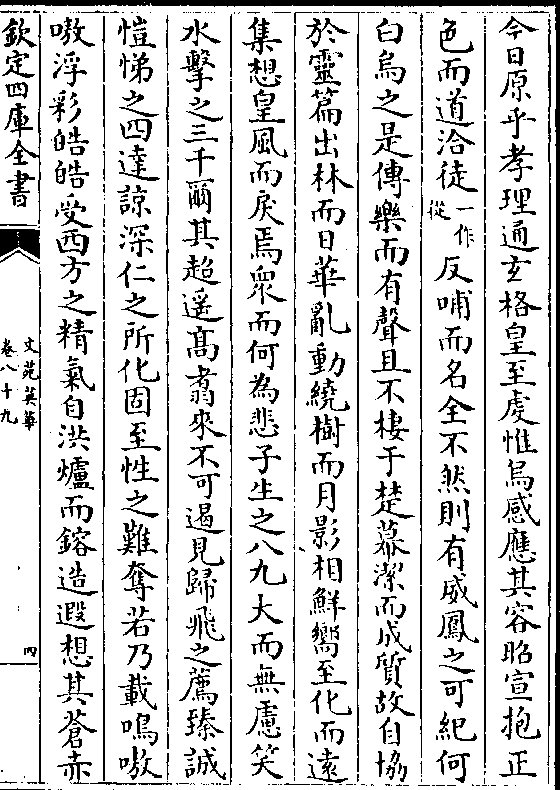 今日原乎孝理通玄格皇至䖍惟烏感應其容昭宣抱正
色而道洽徒一作從反哺而名全不然則有威鳳之可紀何
白烏之是傳樂而有聲且不棲于楚幕潔而成質故自協
於靈篇出林而日華亂動繞樹而月影相鮮嚮至化而遠
集想皇風而戾焉衆而何為悲子生之八九大而無慮笑
水擊之三千爾其超遥髙翥來不可遏見歸飛之薦臻誠
愷悌之四達諒深仁之所化固至性之難奪若乃載鳴嗷
嗷浮彩皓皓受西方之精氣自洪爐而鎔造遐想其蒼赤
欽定四庫全書
文苑英華
卷八十九
四